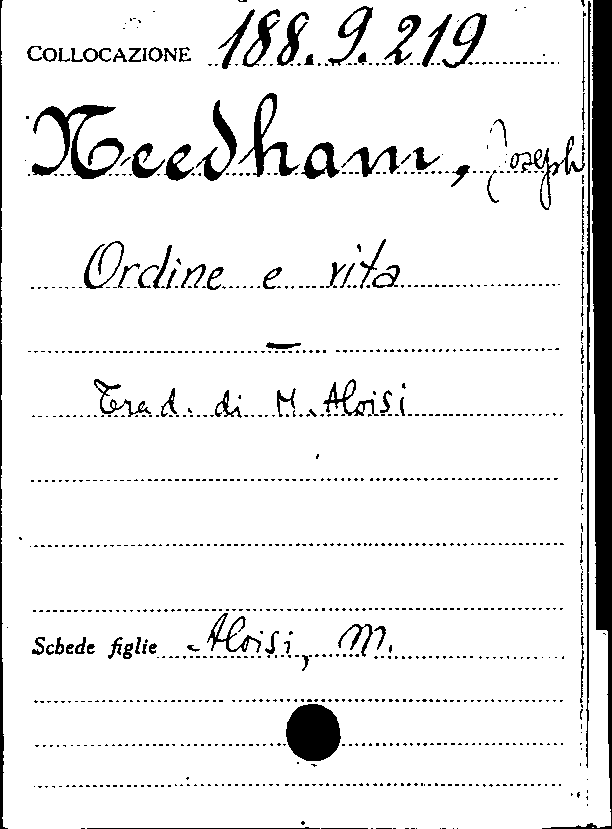 COLLOCAZIONE 188.9.219
Needham, Joseph
Ordine e vita
—
Trad. di M. Aloisi
Schede figlie Aloisi, M.